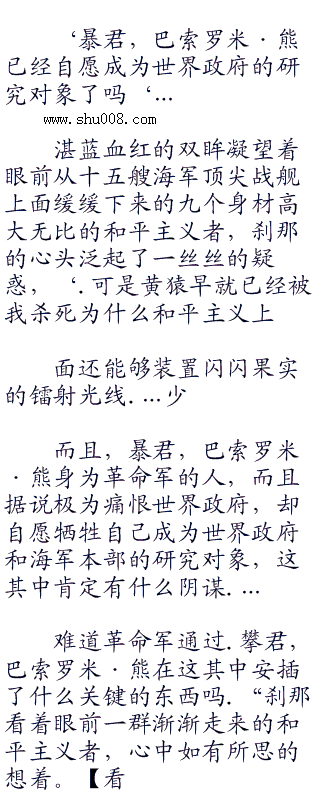 ‘暴君，巴索罗米·熊
已经自愿成为世界政府的研
究对象了吗‘...
www.shu008.com
湛蓝血红的双眸凝望着
眼前从十五艘海军顶尖战舰
上面缓缓下来的九个身材高
大无比的和平主义者，刹那
的心头泛起了一丝丝的疑
惑，‘.可是黄猿早就已经被
我杀死为什么和平主义上
面还能够装置闪闪果实
的镭射光线....少
而且，暴君，巴索罗米
·熊身为革命军的人，而且
据说极为痛恨世界政府，却
自愿牺牲自己成为世界政府
和海军本部的研究对象，这
其中肯定有什么阴谋....
难道革命军通过.攀君，
巴索罗米·熊在这其中安插
了什么关键的东西吗.“刹那
看着眼前一群渐渐走来的和
平主义者，心中如有所思的
想着。【看